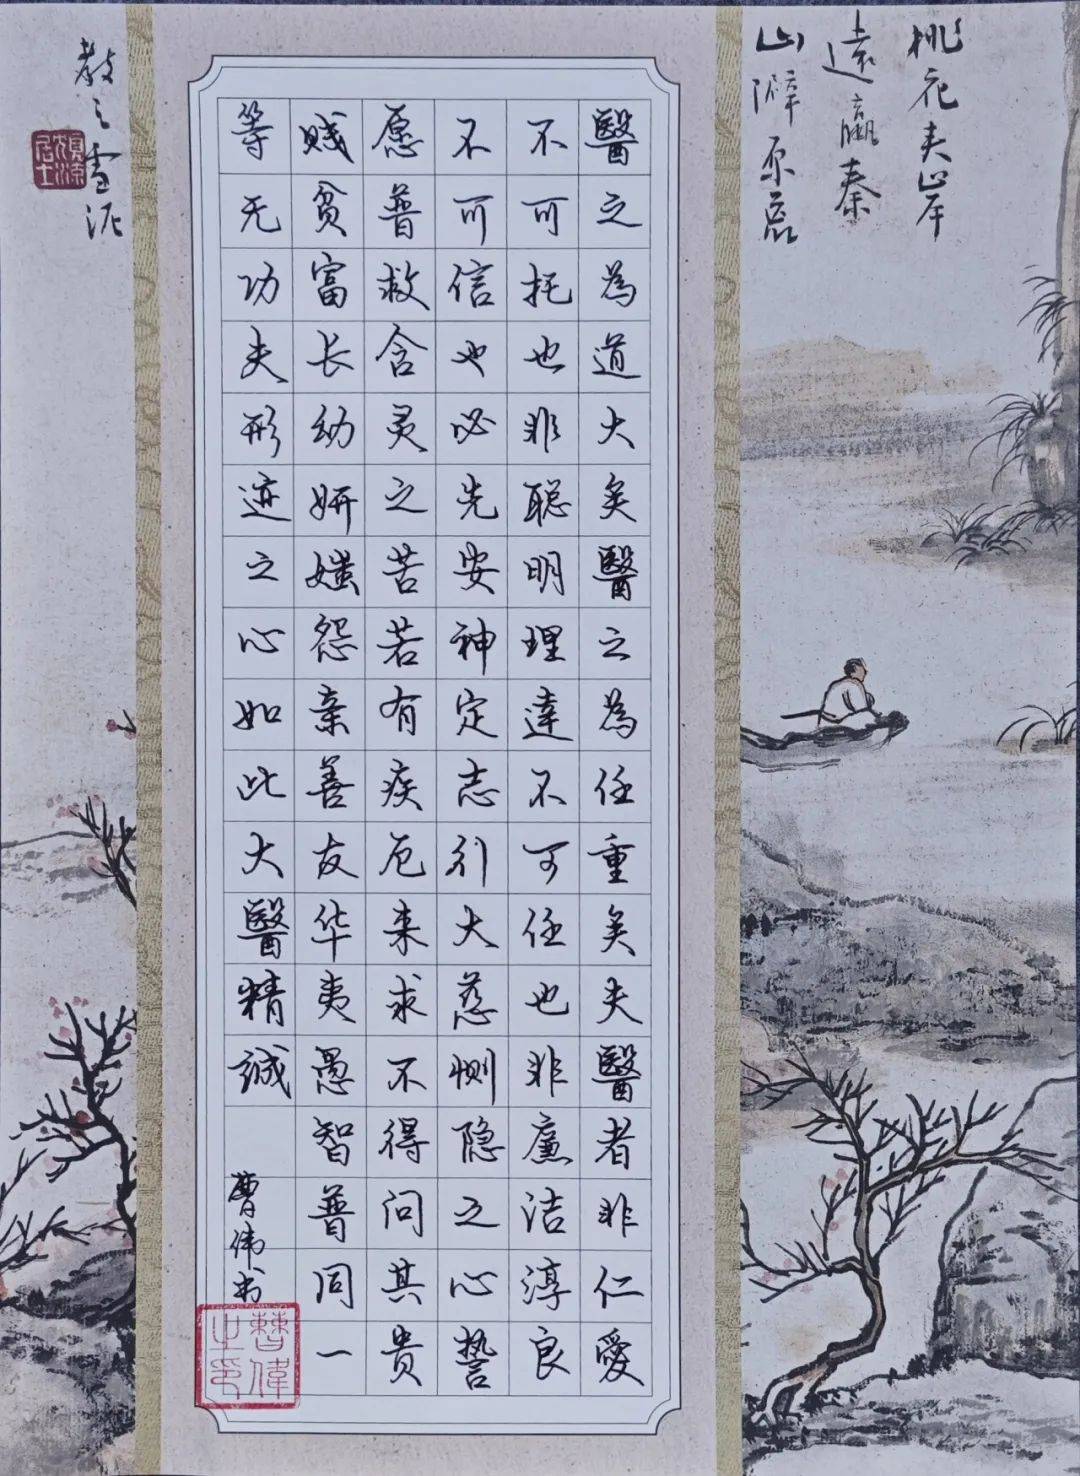 桃花夹岸
遠嬴秦
山僻原荒
醫之為道大矣醫之為任重矣夫醫者非仁愛
不可托也非聪明理達不可任也非廉洁淳良
不可信也必先安神定志引大慈恻隐之心誓
愿普救含灵之苦若有疾厄来求不得问其贵
贱贫富长幼妍媸怨亲善友华夷愚智普同一
等无功夫形迹之心如此大醫精诚
曹伟书
曹偉之印
雪泥